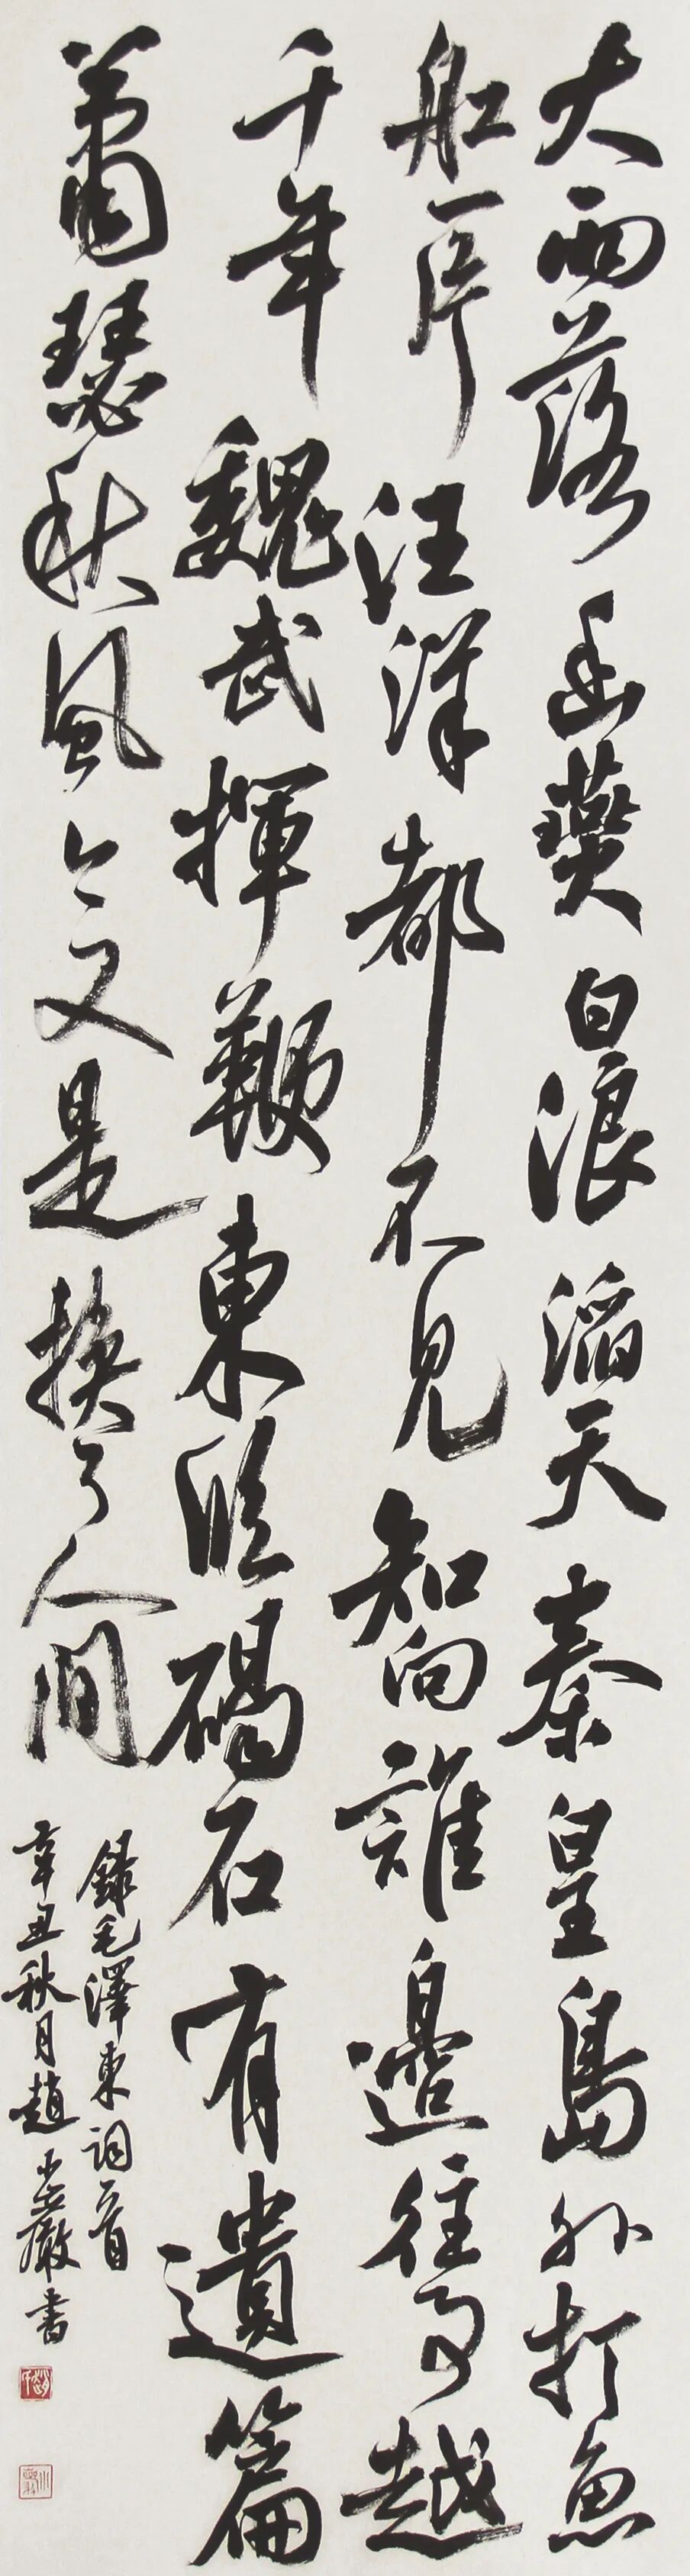 大雨落幽燕白浪滔天秦皇島外打魚
船一片汪洋都不見知向誰邊往事越
千年魏武揮鞭東臨碣石有遺篇
蕭瑟秋風今又是換了人間
錄毛澤東詞一首
辛丑秋月趙小嚴書